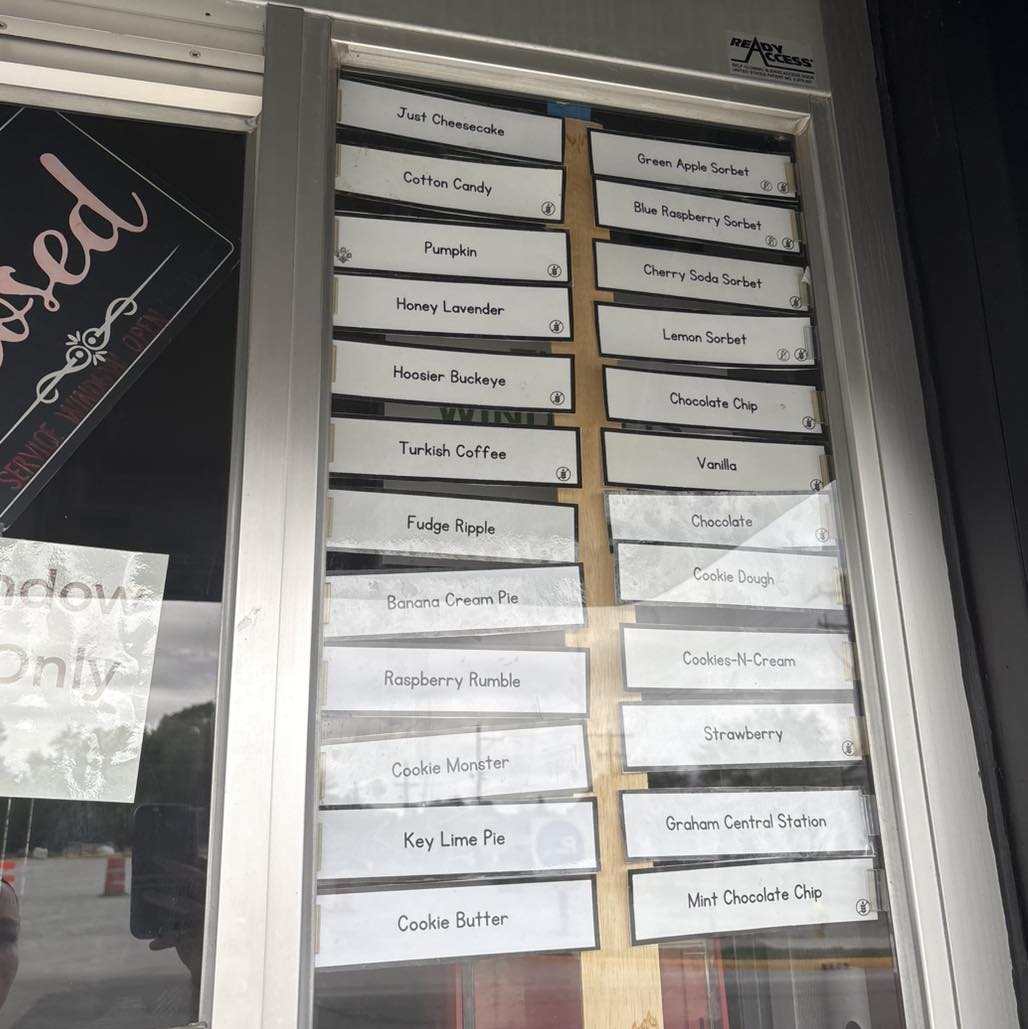 READY
ACCESS
osed
SERVICE WINDOW OPEN
ndow
Only
Just Cheesecake
Cotton Candy
Pumpkin
Honey Lavender
Hoosier Buckeye
Turkish Coffee
Fudge Ripple
Banana Cream Pie
Raspberry Rumble
Cookie Monster
Key Lime Pie
Cookie Butter
Green Apple Sorbet
Blue Raspberry Sorbet
Cherry Soda Sorbet
Lemon Sorbet
Chocolate Chip
Vanilla
Chocolate
Cookie Dough
Cookies-N-Cream
Strawberry
Graham Central Station
Mint Chocolate Chip